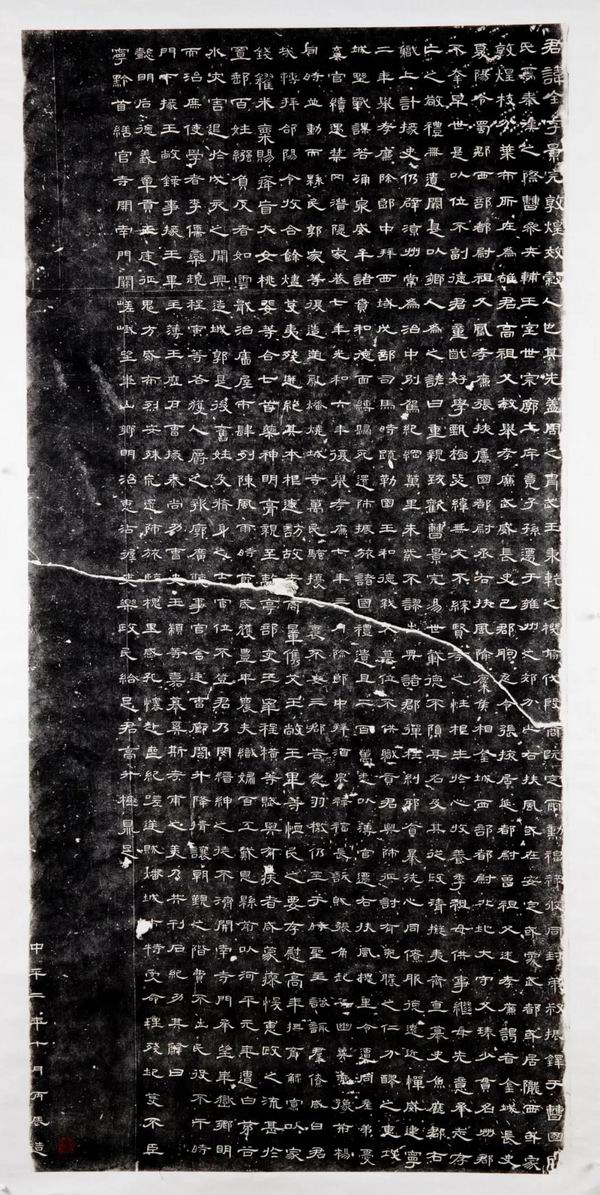 君諱全字景完敦煌效穀人也其先蓋周之胄武王秉乾之機翦伐殷商既定爾勳福祿攸同封弟叔振鐸于曹國因
氏焉秦漢之際曹參夾輔王室世宗廓土斥竟子孫遷于雍州之郊分止右扶風或在安定或處武都或居隴西或家
敦煌枝分葉布所在為雄君高祖父敏舉孝廉武威長史巴郡朐忍令張掖居延都尉曾祖父述孝廉謁者金城長史
夏陽令蜀郡西部都尉祖父鳳孝廉張掖屬國都尉丞右扶風隃麋侯相金城西部都尉北地大守父琫少貫名州郡
不幸早世是以位不副德君童齔好學甄極毖緯無文不綜賢孝之性根生於心收養季祖母供事繼母先意承志存
亡之敬禮無遺闕是以鄉人為之諺曰重親致歡曹景完易世載德不隕其名及其從政清擬夷齊直慕史魚歷郡右
職上計掾史仍辟涼州常為治中別駕紀綱萬里朱紫不謬出典諸郡彈枉糾邪貪暴洗心同僚服德遠近憚威建寧
二年舉孝廉除郎中拜西域戊部司馬時疏勒國王和德弒父篡位不供職貢君興師征討有吮膿之仁分醪之惠攻
城野戰謀若涌泉威牟諸賁和德面縛歸死還師振旅諸國禮遺且二百萬悉以薄官遷右扶風槐里令遭同產弟憂
棄官續遇禁网潛隱家巷七年光和六年復舉孝廉七年三月除郎中拜酒泉祿福長訞賊張角起兵幽冀兗豫荊楊
同時並動而縣民郭家等復造逆亂燔燒城寺萬民騷擾人裹不安三郡告急羽檄仍至于時聖主諮諏群僚咸曰君
哉轉拜郃陽令收合餘燼芟夷殘迸絕其本根遂訪故老商量儁艾王敞王畢等恤民之要存慰高年撫育鰥寡以家
錢糴米粟賜癃盲大女桃斐等合七首藥神明膏親至離亭部吏王宰程橫等賦與有疾者咸蒙瘳悛惠政之流甚於
置郵百姓繈負反者如雲戢治廧屋市肆列陳風雨時節歲獲豐年農夫織婦百工戴恩縣前以河平元年遭白茅谷
水灾害退於戊亥之間興造城郭是後舊姓及脩身之士官位不登君乃閔縉紳之徒不濟開南寺門承望華嶽鄉明
而治庶使學者李儒欒規程寅等各獲人爵之報廓廣聽事官舍廷曹廊閤升降揖讓朝覲之階費不出民役不干時
門下掾王敞錄事掾王畢主薄王歷戶曹掾秦尚功曹史王顓等嘉慕奚斯考甫之美乃共刊石紀功其辭曰
懿明后德義章貢王庭征鬼方威布烈安殊㡿還師旅臨槐里感孔懷赴喪紀嗟逆賊燔城市特受命理殘圮芟不臣
寧黔首繕官寺開南門闕嵯峨望華山鄉明治惠沾渥吏樂政民給足君高升極鼎足
中平二年十月丙辰造